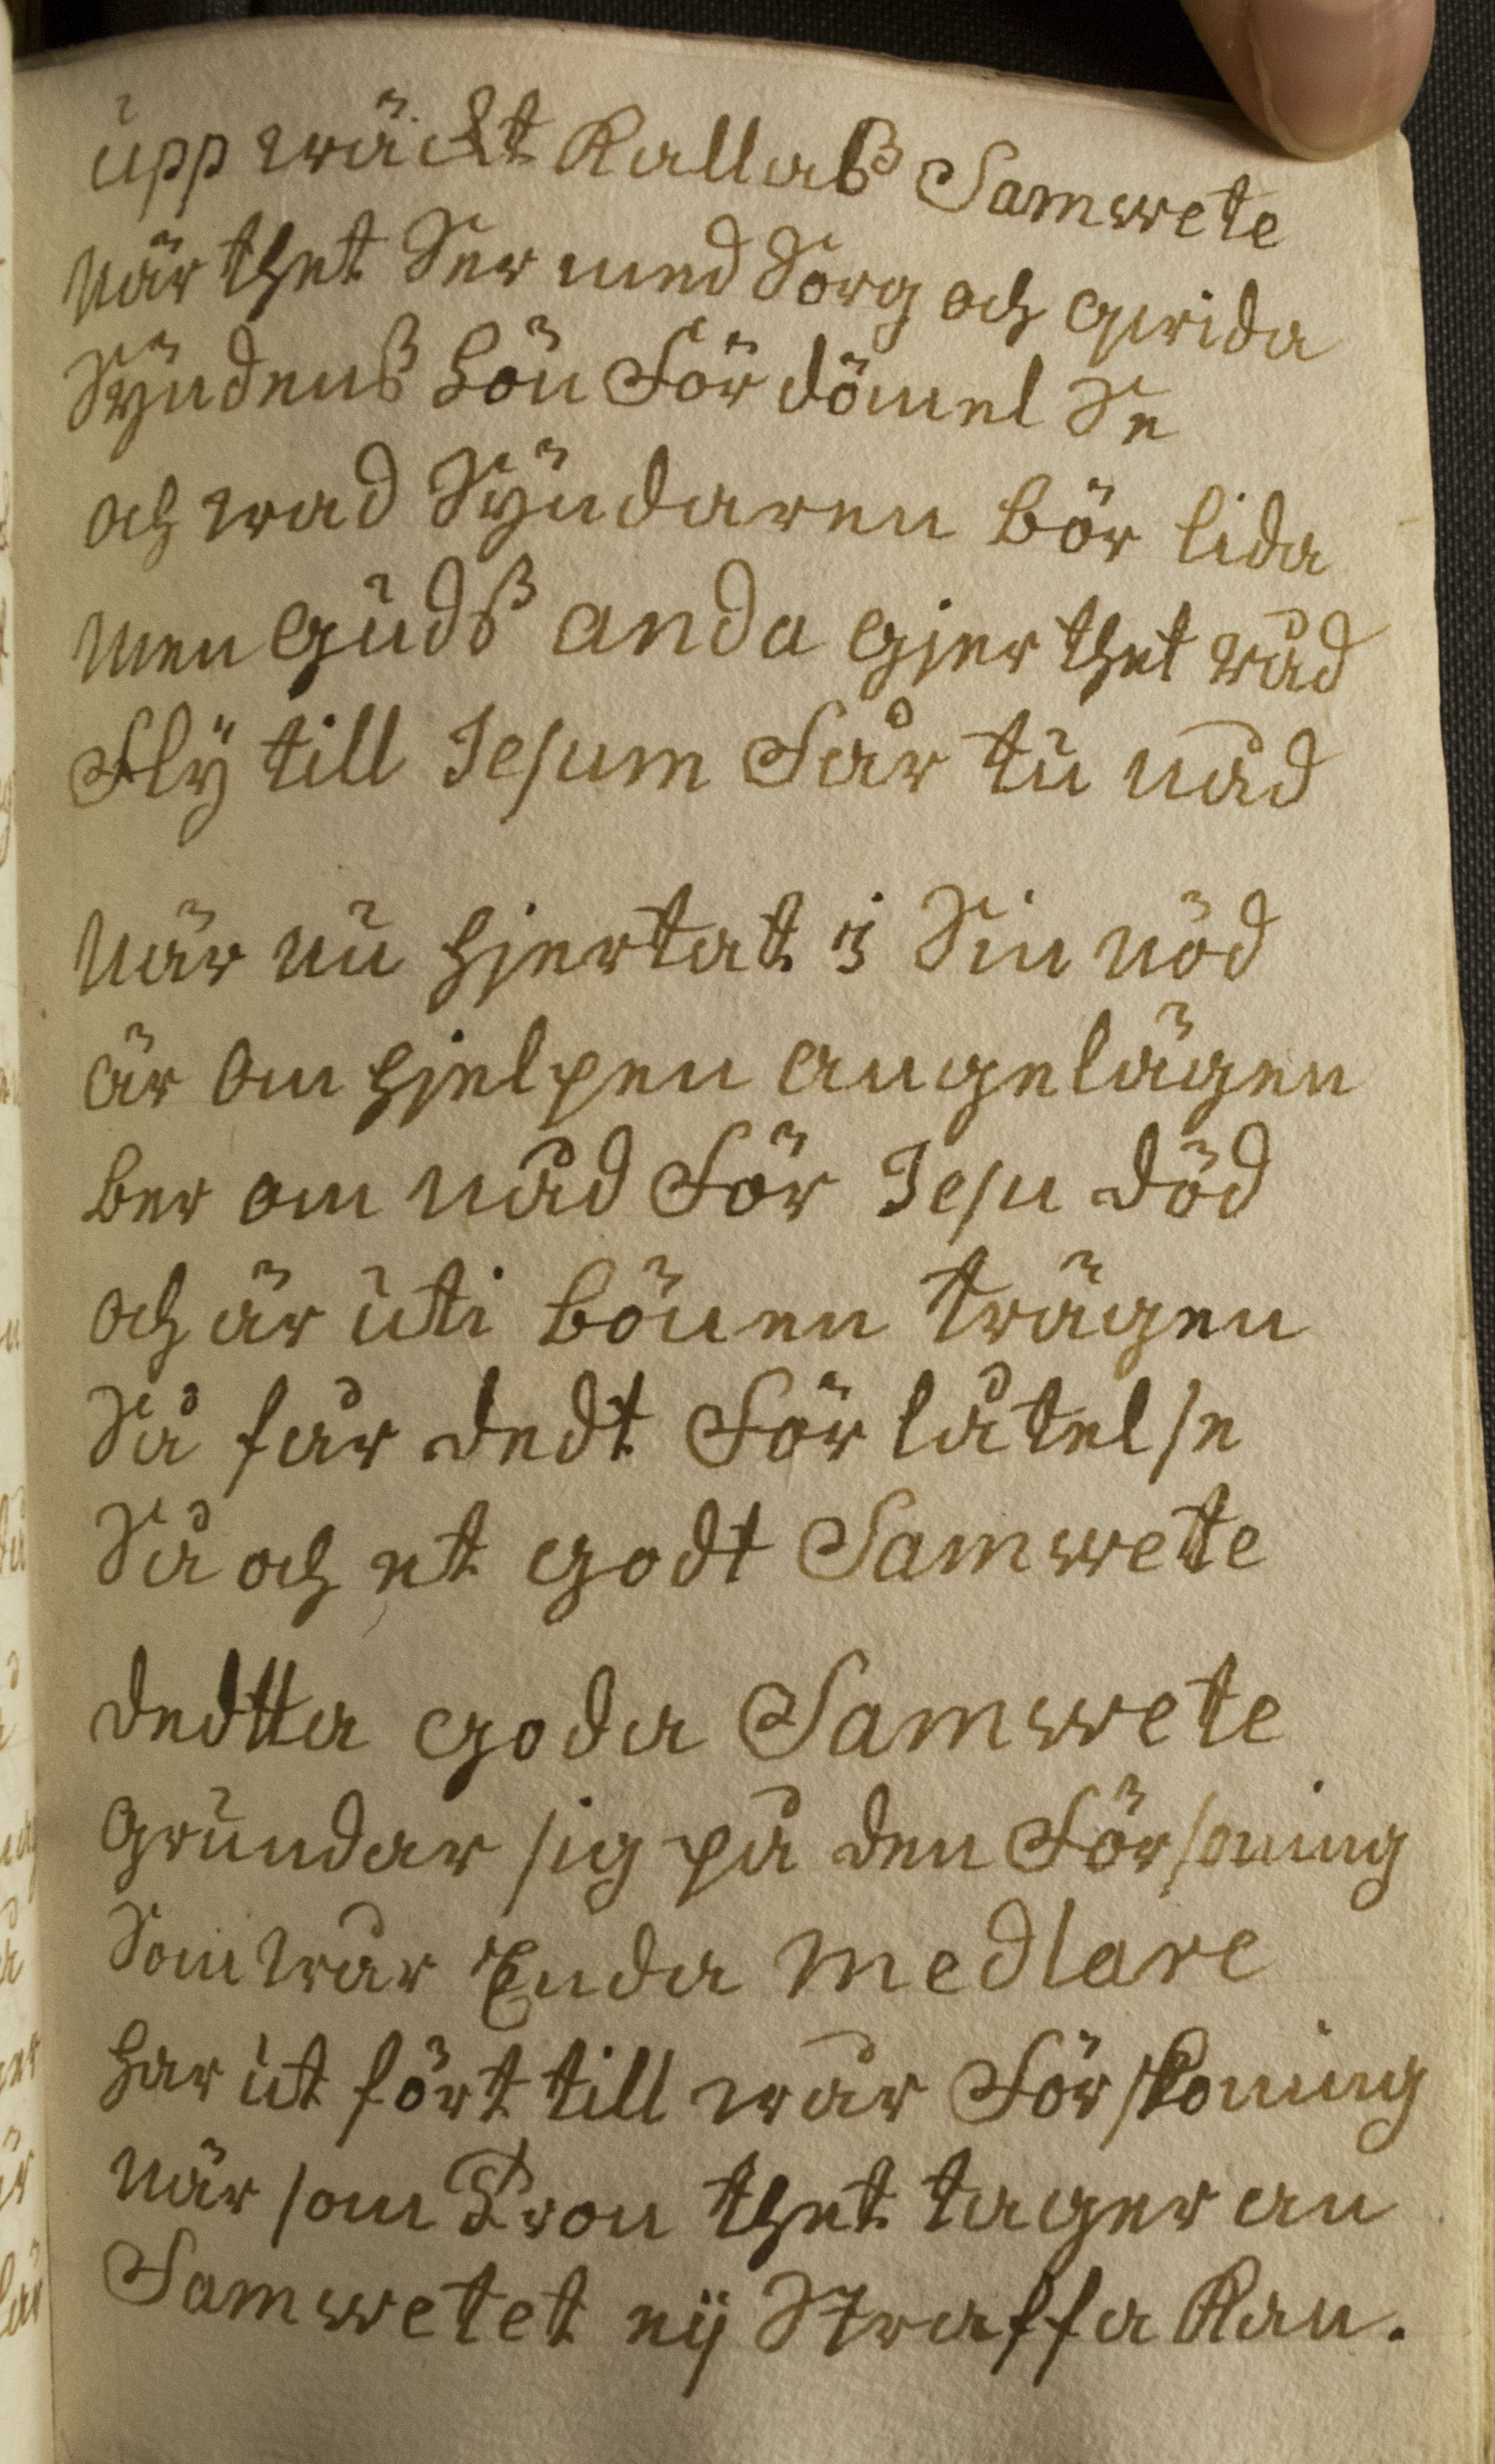 upp wäckt Kallaß Samwete
När thet Ser med Sorg och qwida
Syndenß Lön För dömelSe
och wad Syndaren bör lida
men Gudß anda gier thet råd
Fly till Jesum Får tu nåd
När nu hjertat i Sin nöd
är om hjelpen angelägen
ber om nåd För Jesu död
och är uti bönen trägen
Så får dedt För låtelse
Så och et godt Samwete
dedtta goda Samwete
Grundar sig på den Försoning
Som wår Enda medlare
har ut fört till wår Förskoning
när som Tron thet tager an
Samwetet ej Straffa Kan.